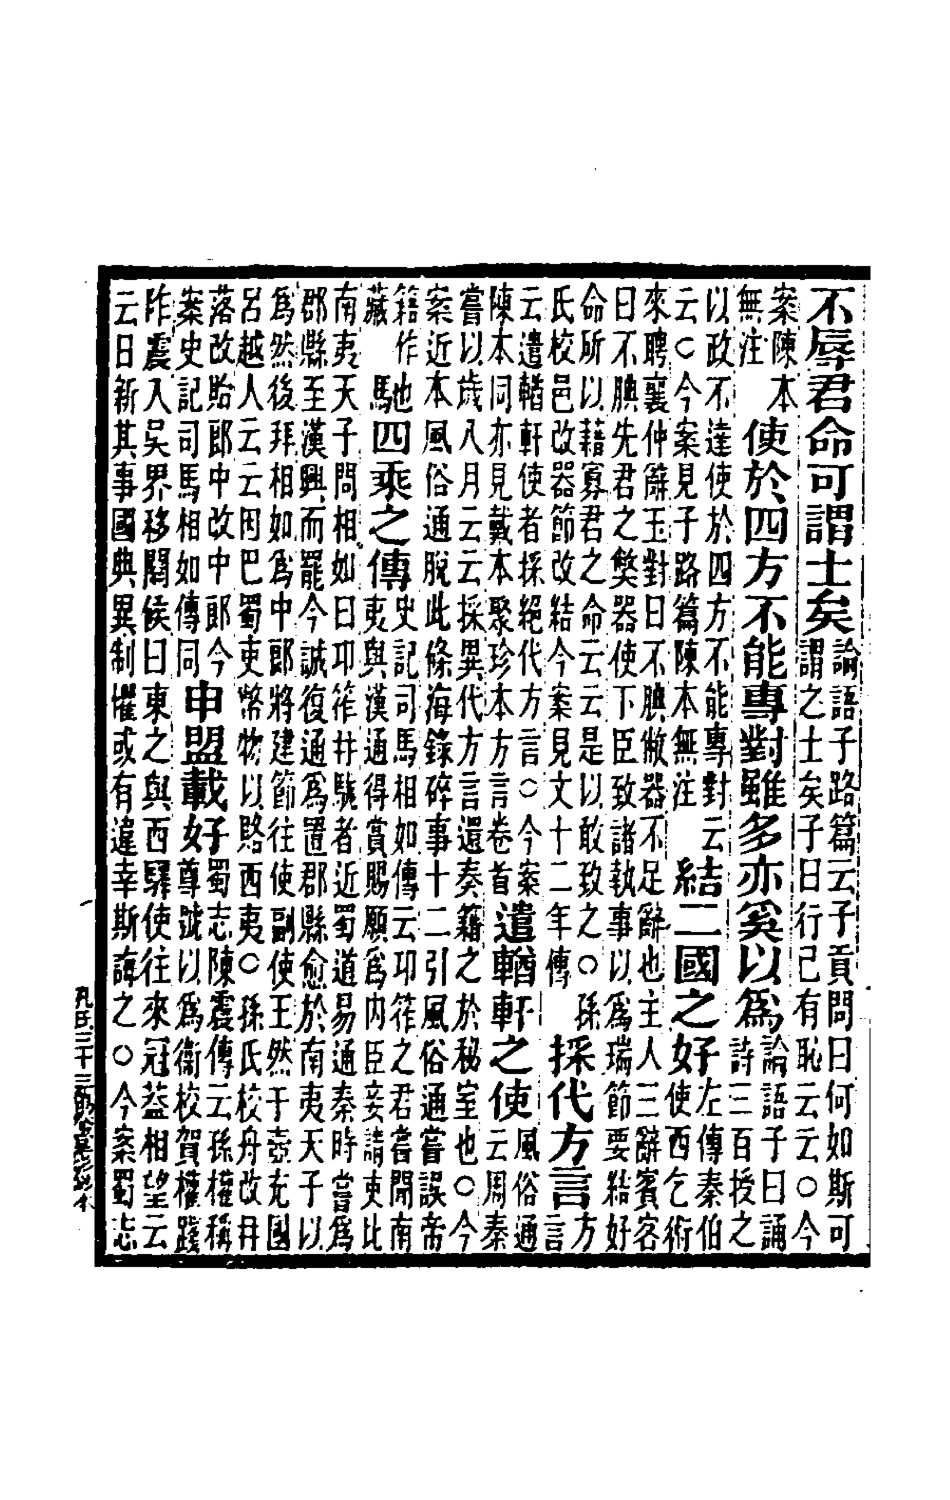 不辱君命可謂士矣論語子路篇云子貢問曰何如斯可
謂之士矣子曰行己有恥云云○今
案陳本
無注
使於四方不能專對雖多亦奚以爲論語子曰誦
詩三百授之
以政不達使於四方不能專對云
云○今案見子路篇陳本無注
結二國之好左傳秦伯
使西乞術
來聘襄仲辭玉對曰不腆敝器不足辭也主人三辭賓客
曰不腆先君之獘器使下臣致諸執事以爲瑞節要結好
命所以藉寡君之命云云是以敢致之○孫
氏校邑改器節改結今案見文十二年傳
採代方言方
言
云遣輶軒使者採絕代方言○今案
陳本同亦見戴本聚珍本方言卷首
遣輶軒之使風俗通
云周秦
嘗以歲八月云云採異代方言還奏籍之於秘室也○今
案近本風俗通脫此條海錄碎事十二引風俗通嘗誤帝
籍作也
藏
馬四乘之傳史記司馬相如傳云邛筰之君嘗聞南
夷與漢通得賞賜願爲內臣妾請吏比
南夷天子問相如曰邛筰井駹者近蜀道易通秦時嘗爲
郡縣至漢興而罷今誠復通爲置郡縣愈於南夷天子以
爲然後拜相如爲中郎將建節往使副使王然于壺充國
呂越人云云因巴蜀吏幣物以賂西夷○孫氏校舟改冉
落改貽郎中改中郎今
案史記司馬相如傳同
申盟載好蜀志陳震傳云孫權稱
尊號以爲衛校賀權踐
阼震入吳界移關侯曰東之與西驛使往來冠蓋相望云
云日新其事國典異制懼或有違幸斯誨之○今案蜀志